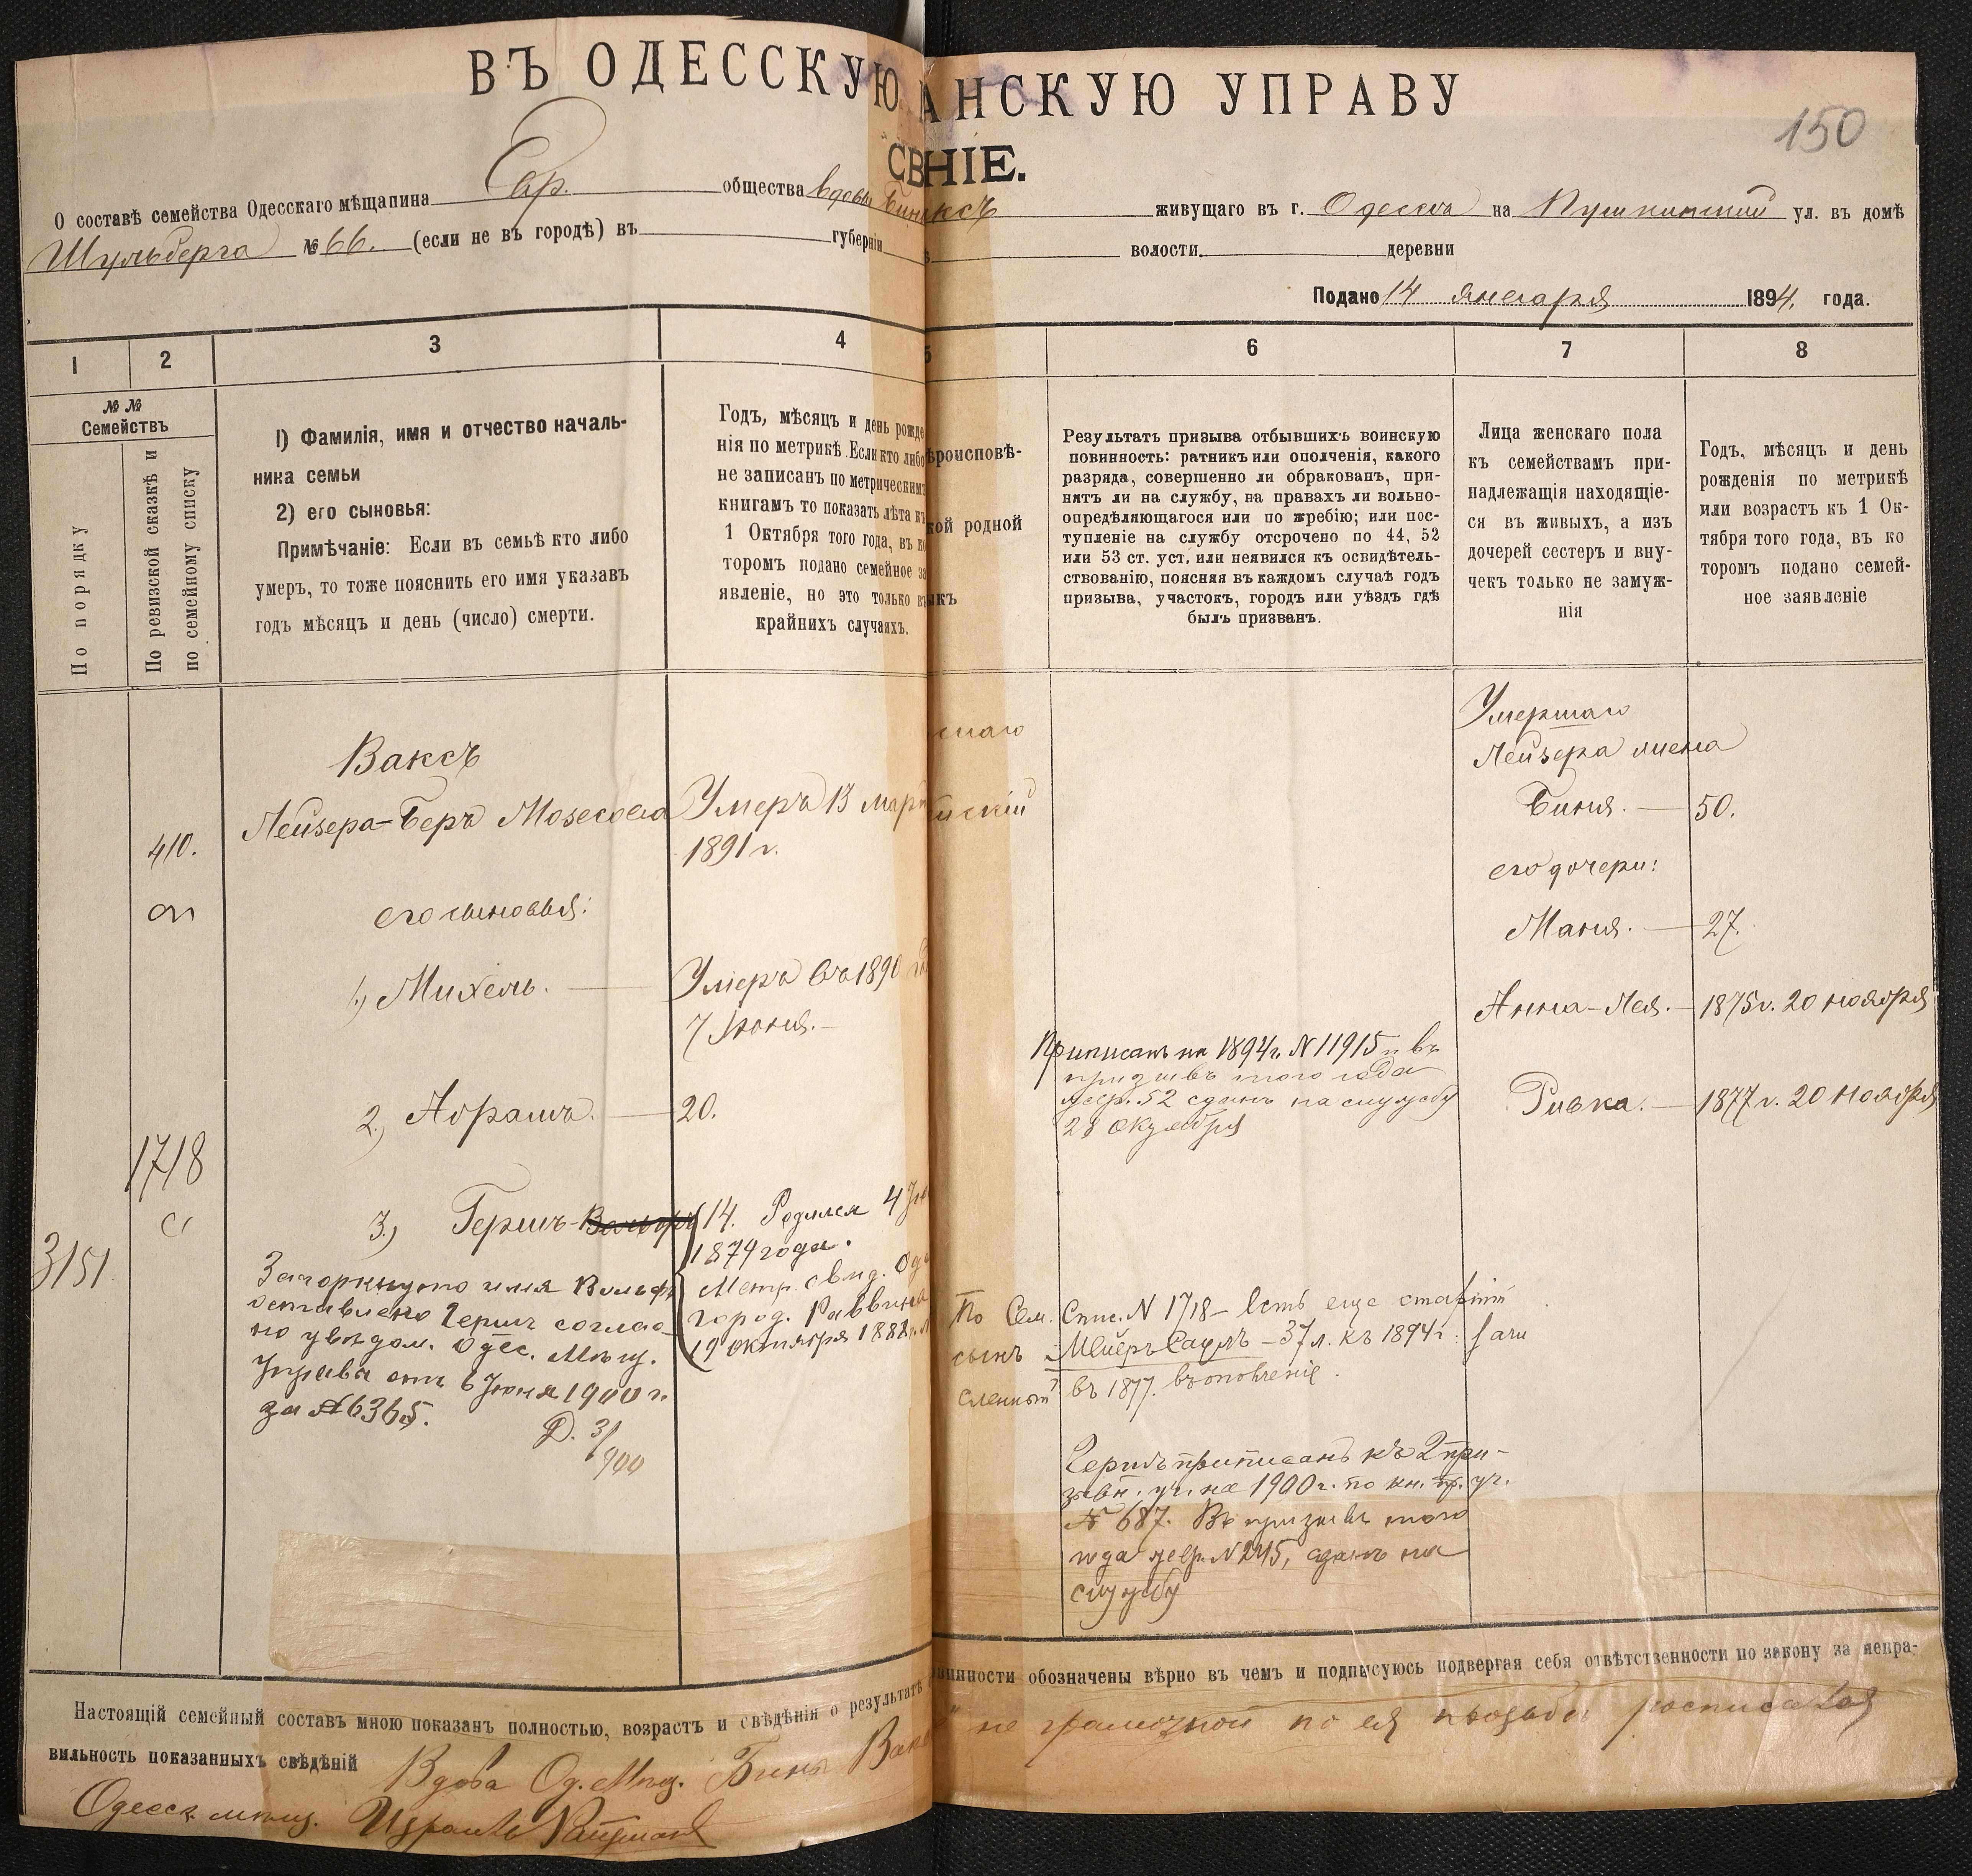 ВЪ ОДЕССКУЮ АНСКУЮ УПРАВУ
150
СВ НІЕ.
О составѣ семейства Одесскаго мѣщанина Евр. общества вдовы Бини Ваксъ живущаго въ г. Одесса на Пушкинской ул. въ домѣ
Шульберга № 66. (если не въ городѣ) въ губерніи волости деревни
Подано 14 января 1894 года.
1 2 3 4 5 6 7 8
№ №
Семействъ
По порядку
По ревизской сказкѣ и
по семейному списку
1) Фамилія, имя и отчество началь-
ника семьи
2) его сыновья:
Примѣчаніе: Если въ семьѣ кто либо
умеръ, то тоже пояснить его имя указавъ
годъ мѣсяцъ и день (число) смерти.
Годъ, мѣсяцъ и день рожде
нія по метрикѣ. Если кто либо
не записанъ по метрическимъ
книгамъ то показать лѣта къ
1 Октября того года, въ ко
торомъ подано семейное за
явленіе, но это только въ
крайнихъ случаяхъ.
ѣроисповѣ-
кой родной
ыкъ
Результатъ призыва отбывшихъ воинскую
повинность: ратникъ или ополченія, какого
разряда, совершенно ли обракованъ, при-
нятъ ли на службу, на правахъ ли вольно-
опредѣляющагося или по жребію; или пос-
тупленіе на службу отсрочено по 44, 52
или 53 ст. уст. или неявился къ освидѣтель-
ствованію, поясняя въ каждомъ случаѣ годъ
призыва, участокъ, городъ или уѣздъ гдѣ
былъ призванъ.
Лица женскаго пола
къ семействамъ при-
надлежащія находящіе-
ся въ живыхъ, а изъ
дочерей сестеръ и вну-
чекъ только не замуж-
нія
Годъ, мѣсяцъ и день
рожденія по метрикѣ
или возрастъ къ 1 Ок-
тября того года, въ ко
торомъ подано семей-
ное заявленіе
410.
1718
3151
Ваксъ
Лейзера-Беръ Мозесова Умеръ 13 мар
1891 г.
его сыновья:
1.) Михель. Умеръ въ 1890
7 Іюня.
2.) Абрамъ. 20.
3.) Гершъ-Вольфъ 14. Родился 4
1879 года.
Метр. свид. Од
город. Раввина
19 октября 1881 г.
Зачеркнуто имя Вольфъ
оставлено Гершъ соглас-
но увѣдом. Одес. Мѣщ.
Управы отъ 6 Іюня 1900 г.
за № 6365.
Д. 3/900
скій
Приписанъ на 1894 г. № 11915 и въ
призывъ того года
жер. 52 сданъ на службу
28 октября
По Сем. Спис. № 1718 – Есть еще старшій
сынъ Мейеръ Саулъ – 37 л. къ 1894 г.
въ 1877. въ ополченіе.
Гершъ приписанъ къ 2 при-
зывн. уч. на 1900 г. по кн. пр. уч.
№ 687. Въ призывъ того
года жер. № 245, сданъ на
службу
Умершаго
Лейзера жена
Биня. 50.
его дочери:
Маня. 27.
Анна-Лея. 1875 г. 20 ноября
Ривка. 1877 г. 20 ноября
Настоящій семейный составъ мною показанъ полностью, возрастъ и свѣдѣнія о результатѣ инности обозначены вѣрно въ чемъ и подписуюсь подвергая себя отвѣтственности по закону за непра-
вильность показанныхъ свѣдѣній Вдова Од. Мѣщ. Биня Вакс не грамотной по ея просьбѣ росписался
Одесск. мѣщ. Израиль